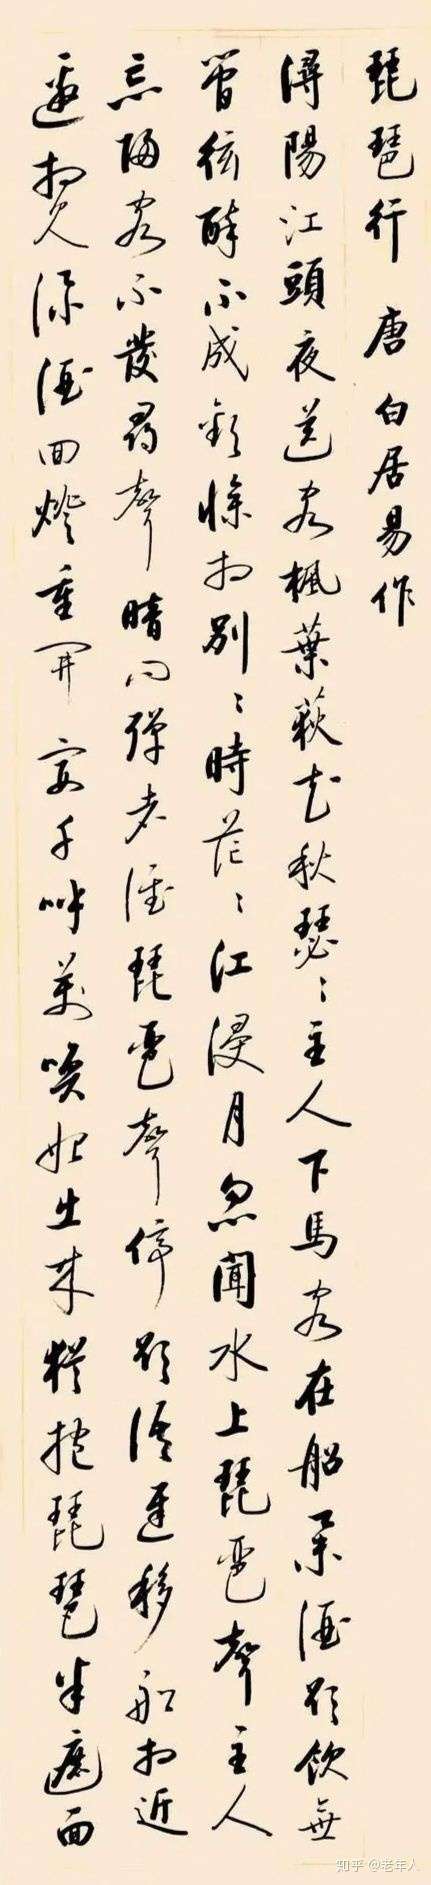 琵琶行 唐 白居易作
潯陽江頭夜送客楓葉荻花秋瑟〻主人下馬客在船舉酒欲飲無
管弦醉不成歡慘相別〻時茫〻江浸月忽聞水上琵琶聲主人
忘歸客不發尋聲暗問彈者誰琵琶聲停欲語遲移船相近
邀相見添酒回燈重開宴千呼萬喚始出來猶抱琵琶半遮面
知乎 @老年人